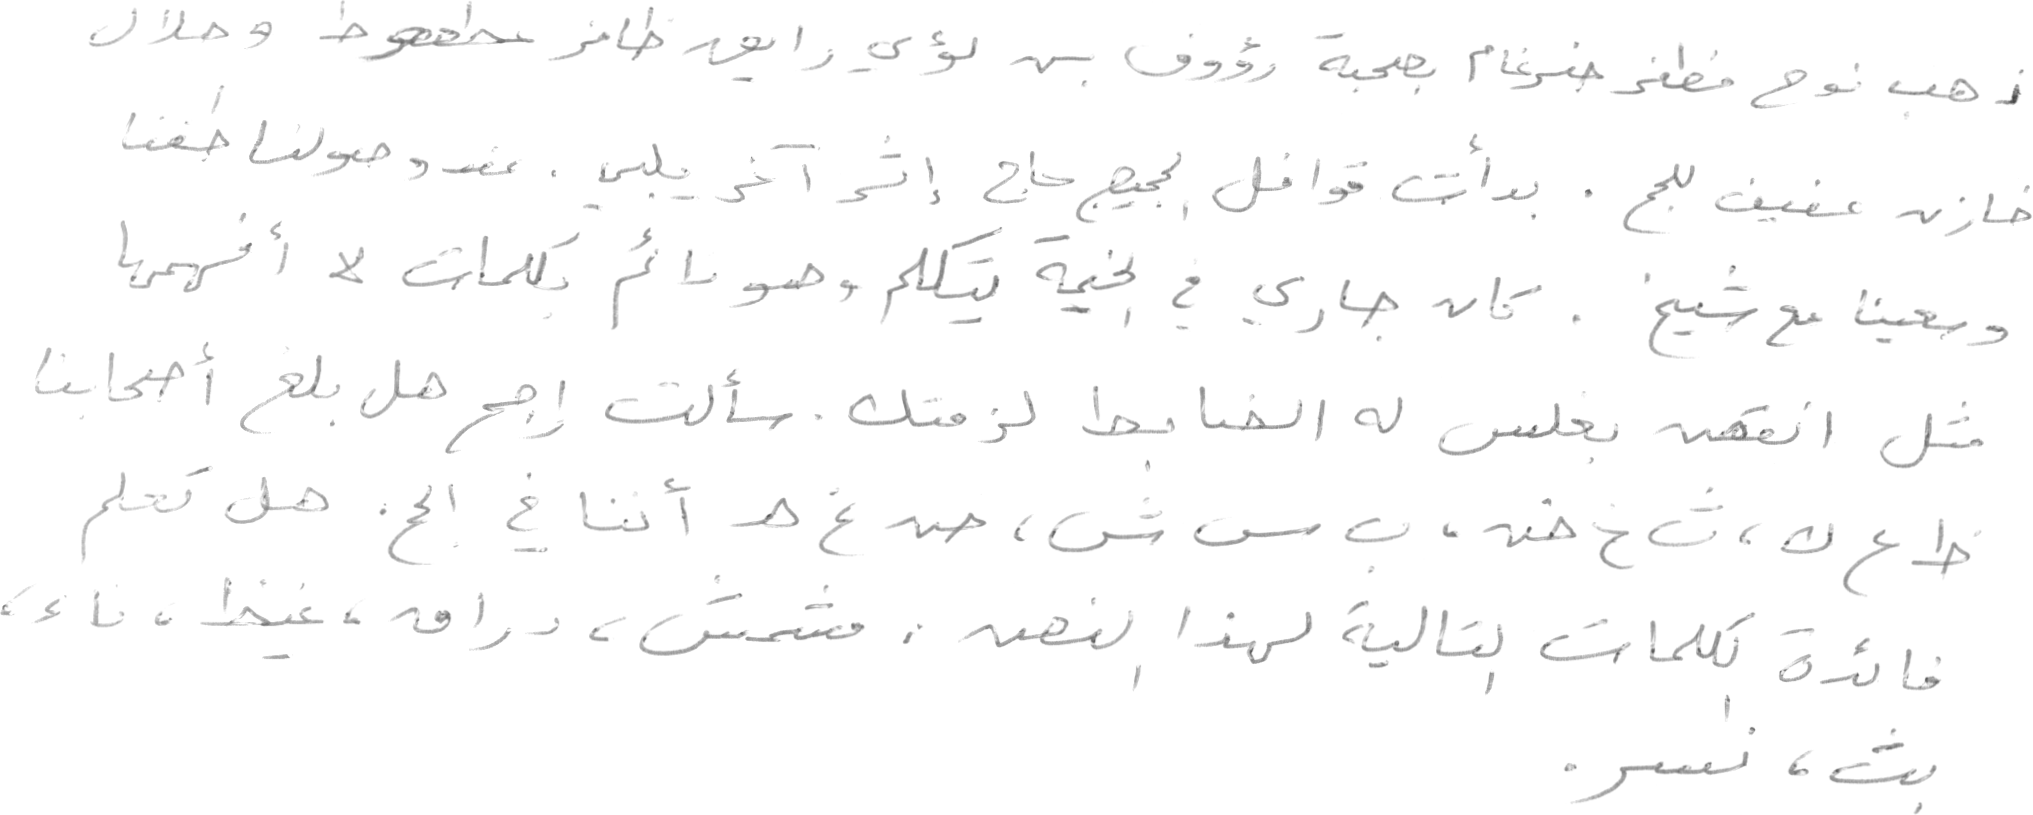 ذهب نوح مظفر ضرغام بصحبة رؤوف بن لؤي رايق ظافر عطعوط وهلال
خازن عفيف للحج . بدأت قوافل الحجيج حاج إثر آخر يلبي . عند وصولنا طفنا
وسعينا مع شيخ . كان جاري في الخيمة يتكلم وهو نائم بكلمات لا أفهمها
مثل انقض بغلس له الضابط لزمتك . سألت راجح هل بلغ أصحابنا
ظ ع ك ، ث خ ض ، ب س ش ، ص غ هـ أننا في الحج . هل تعلم
فائدة الكلمات التالية لهذا النص . مشمش ، دراق ، غيظ ، ناء ،
بث ، نسر .